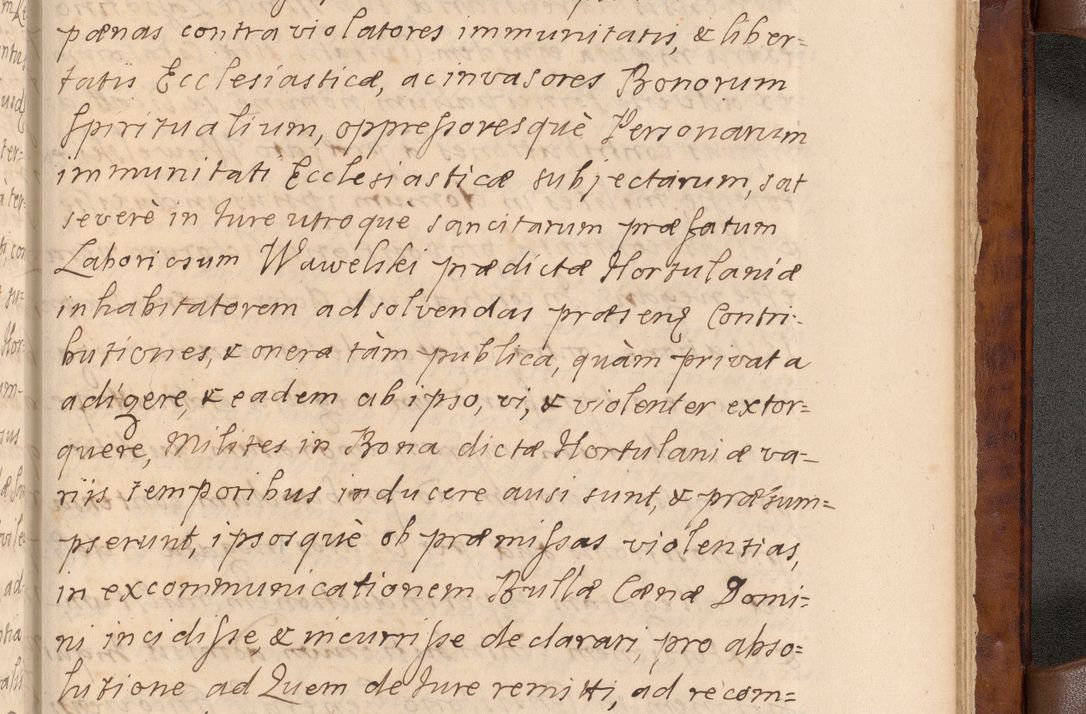 pœnas contra violatores immunitatis, & liber=
tatis Ecclesiasticæ, ac invasores Bonorum
spiritualium, oppressoresquè Personarum
immunitati Ecclesiasticæ subjectarum, sat
severè in Jure utroque sancitarum præfatum
Laboriosum Wawelski prædictæ Hortulaniæ
inhabitatorem ad solvendas præsenꝫ Contri=
butiones, & onera tàm publica, quàm privata
adigere, & eadem ab ipso, vi, & violenter extor=
quere, Milites in Bona dictæ Hortulaniæ va=
riis temporibus inducere ausi sunt, & præsum=
pserunt, ipsosquè ob præmissas violentias,
in excommunicationem Bullæ Cænæ Domi=
ni incidisse, & incurrisse declarari, pro abso=
lutione ad Quem de Jure remitti, ad recom=